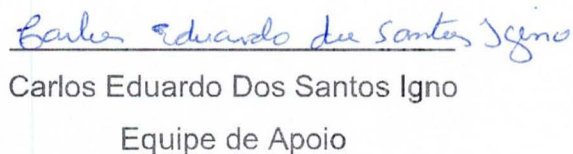 Carlos Eduardo dos Santos Igno
Carlos Eduardo Dos Santos Igno
Equipe de Apoio